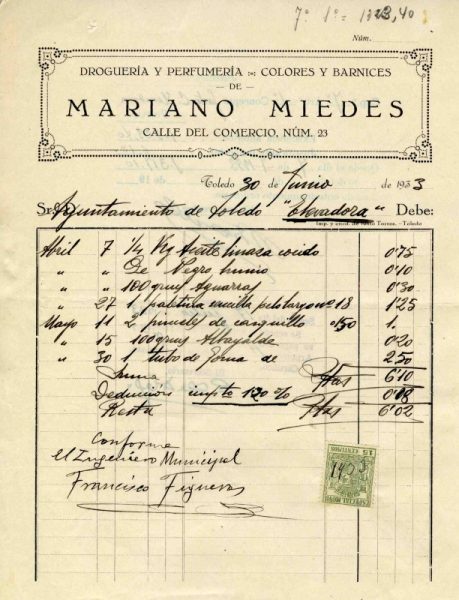 7º 1º = 1323,40
Núm.
DROGUERÍA Y PERFUMERÍA COLORES Y BARNICES
— DE —
MARIANO MIEDES
CALLE DEL COMERCIO, NÚM. 23
Toledo 30 de Junio de 1933
Sr. Ayuntamiento de Toledo "Elevadora" Debe:
Imp. y enc. de Toledo
Abril 7 1/4 Kg Aceite linaza cocido 0'75
" " De Negro humo 0'10
" " 100 grms Aguarras 0'30
" 27 1 paletina sencilla pelo largo nº 18 1'25
Mayo 11 2 pinceles de canquillo 0'50 1.
" 15 100 grms Albayalde 0'20
" 30 1 tubo de goma de 2'50
Suma Ptas 6'10
Deduccion impto 1'30 % 0'08
Resta Ptas 6'02
Conforme
El Ingeniero Municipal
Francisco Figueras
1933
ESPECIAL MOVIL
15 CENTIMOS